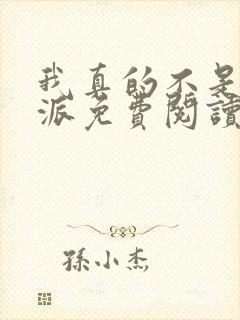 我真的不是
派免費閱讀
孫小杰